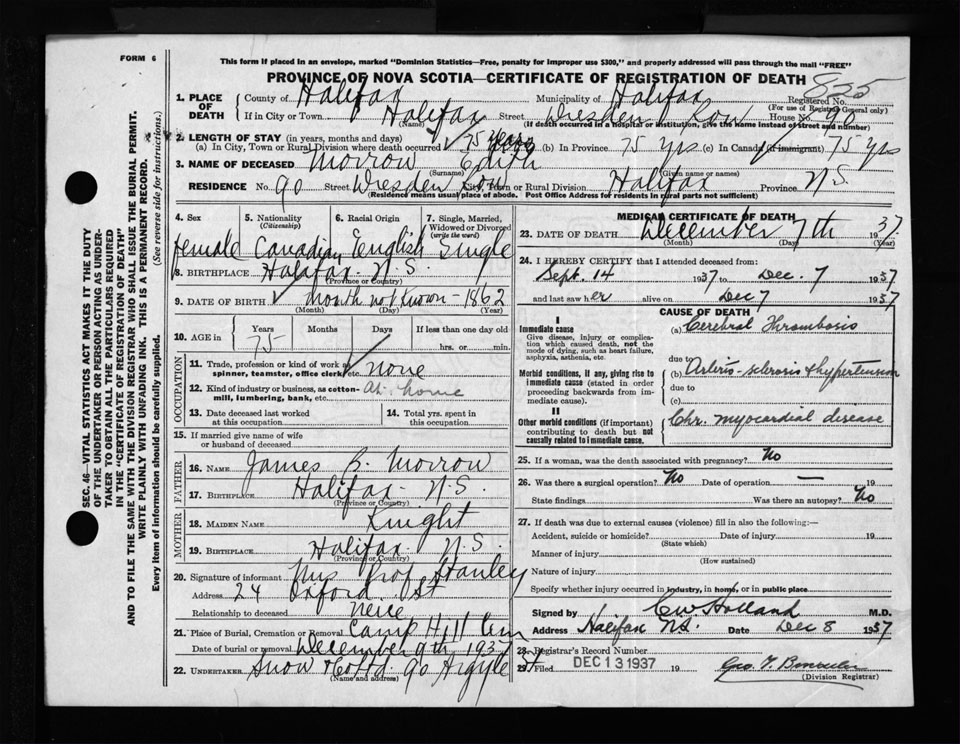 FORM 6
This form if placed in an envelope, marked "Dominion Statistics—Free, penalty for improper use $300," and properly addressed will pass through the mail "FREE"
PROVINCE OF NOVA SCOTIA—CERTIFICATE OF REGISTRATION OF DEATH
825
1. PLACE OF DEATH
County of Halifax Municipality of Halifax Registered No.
(For use of Registrar General only)
If in City or Town Halifax Street Dresden Row House No. 90
(Name) (If death occurred in a hospital or institution, give the name instead of street and number)
2. LENGTH OF STAY (in years, months and days)
(a) In City, Town or Rural Division where death occurred 75 years (b) In Province 75 yrs (c) In Canada (if immigrant) 75 yrs
3. NAME OF DECEASED Morrow Edith
(Surname) (Given name or names)
RESIDENCE No. 90 Street Dresden Row City, Town or Rural Division Halifax Province N.S.
(Residence means usual place of abode. Post Office Address for residents in rural parts not sufficient)
4. Sex 5. Nationality (Citizenship) 6. Racial Origin 7. Single, Married, Widowed or Divorced (write the word)
female Canadian English Single
8. BIRTHPLACE Halifax N.S.
(Province or Country)
9. DATE OF BIRTH month not known - 1862
(Month) (Day) (Year)
10. AGE in Years Months Days If less than one day old
75 hrs. or min.
OCCUPATION
11. Trade, profession or kind of work as spinner, teamster, office clerk, etc. none
12. Kind of industry or business, as cotton-mill, lumbering, bank, etc. At home
13. Date deceased last worked at this occupation
14. Total yrs. spent in this occupation
15. If married give name of wife or husband of deceased
FATHER
16. NAME James B. Morrow
17. BIRTHPLACE Halifax N.S.
(Province or Country)
MOTHER
18. MAIDEN NAME Knight
19. BIRTHPLACE Halifax N.S.
(Province or Country)
20. Signature of informant Mrs Prof Stanley
Address 24 Oxford St
Relationship to deceased Neice
21. Place of Burial, Cremation or Removal Camp Hill Cem
Date of burial or removal December 9th 1937
22. UNDERTAKER Snow & Co Ltd. 90 Argyle St
(Name and address)
MEDICAL CERTIFICATE OF DEATH
23. DATE OF DEATH December 7th 1937
(Month) (Day) (Year)
24. I HEREBY CERTIFY that I attended deceased from:
Sept. 14 1937 to Dec. 7 1937
and last saw her alive on Dec 7 1937
CAUSE OF DEATH
I
Immediate cause
Give disease, injury or complication which caused death, not the mode of dying, such as heart failure, asphyxia, asthenia, etc.
(a) Cerebral Thrombosis
due to
Morbid conditions, if any, giving rise to immediate cause (stated in order proceeding backwards from immediate cause).
(b) Arterio-sclerosis & hypertension
due to
(c)
II
Other morbid conditions (if important) contributing to death but not causally related to immediate cause.
Chr. myocardial disease
25. If a woman, was the death associated with pregnancy? No
26. Was there a surgical operation? No Date of operation — 19
State findings Was there an autopsy? No
27. If death was due to external causes (violence) fill in also the following:—
Accident, suicide or homicide? Date of injury 19
(State which)
Manner of injury
(How sustained)
Nature of injury
Specify whether injury occurred in industry, in home, or in public place
Signed by C W Holland M.D.
Address Halifax N.S. Date Dec 8 1937
28. Registrar's Record Number
29. Filed DEC 13 1937 19
(Division Registrar)
SEC. 46—VITAL STATISTICS ACT MAKES IT THE DUTY
OF THE UNDERTAKER OR PERSON ACTING AS UNDERTAKER TO OBTAIN ALL THE PARTICULARS REQUIRED
IN THE "CERTIFICATE OF REGISTRATION OF DEATH"
AND TO FILE THE SAME WITH THE DIVISION REGISTRAR WHO SHALL ISSUE THE BURIAL PERMIT.
WRITE PLAINLY WITH UNFADING INK. THIS IS A PERMANENT RECORD.
Every item of information should be carefully supplied. (See reverse side for instructions.)